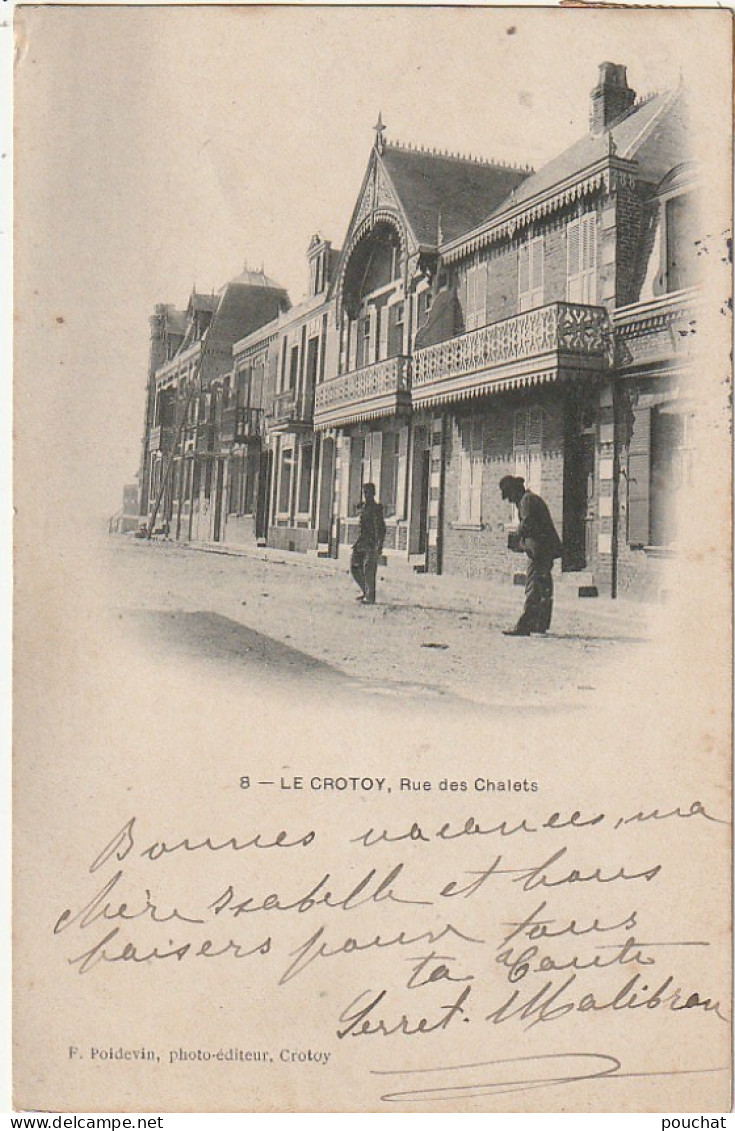 8 — LE CROTOY, Rue des Chalets
Bonnes vacances, ma
chère Isabelle et bons
baisers pour tous
ta Tante
Serret. Malibran
F. Poidevin, photo-éditeur, Crotoy
pouchat